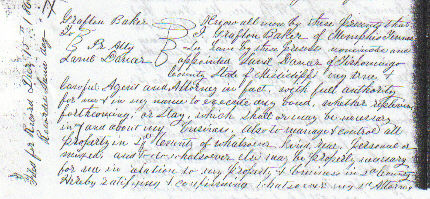 Grafton Baker
To
Pr Atty
Know all men by these presents that
I Grafton Baker of Memphis Tennes
do have by these presents nominate and
appointed of Tishomingo
County State of Mississippi my true &
lawful Agent and Attorney in fact, with full authority
for me & in my name to execute any bond, whether replevin,
forthcoming, or Stay, which shall or may be necessary
in & about my business, also to manage & control all
property in Sd County of whatsoever kind, real, personal or
mixed, and to do whatsoever else may be properly necessary
for me in relation to my property & business in sd County
Hereby ratifying & confirming whatsoever my sd Attorney
Filed for Record
Recorded Same day